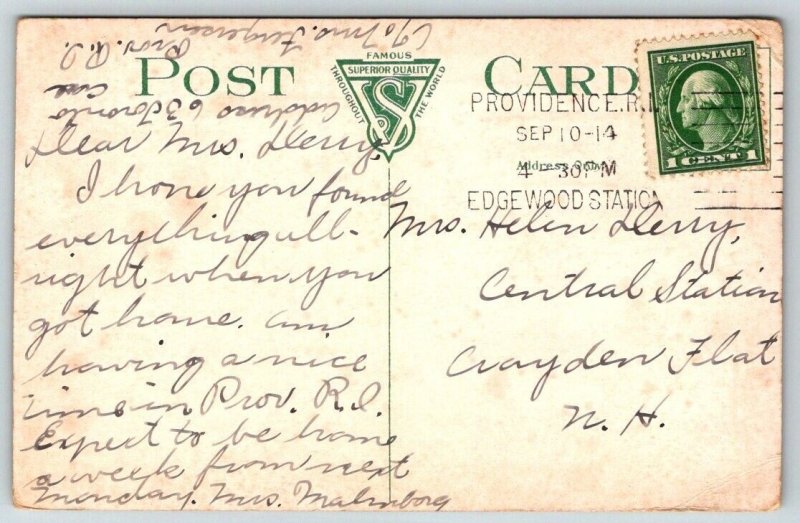 c/o Mrs. Ferguson
Prov. R.I.
address 63 Toronto
Ave
POST CARD
FAMOUS
SUPERIOR QUALITY
THROUGHOUT THE WORLD
S
U.S. POSTAGE
1 CENT 1
PROVIDENCE, R.I.
SEP 10-14
4-30PM
EDGEWOOD STATION
Address Only
Dear Mrs. Derry,
I hope you found
everything all-
right when you
got home. am
having a nice
time in Prov. R.I.
Expect to be home
a week from next
Monday. Mrs. Malmborg
Mrs. Helen Derry,
Central Station
Croyden Flat
N. H.